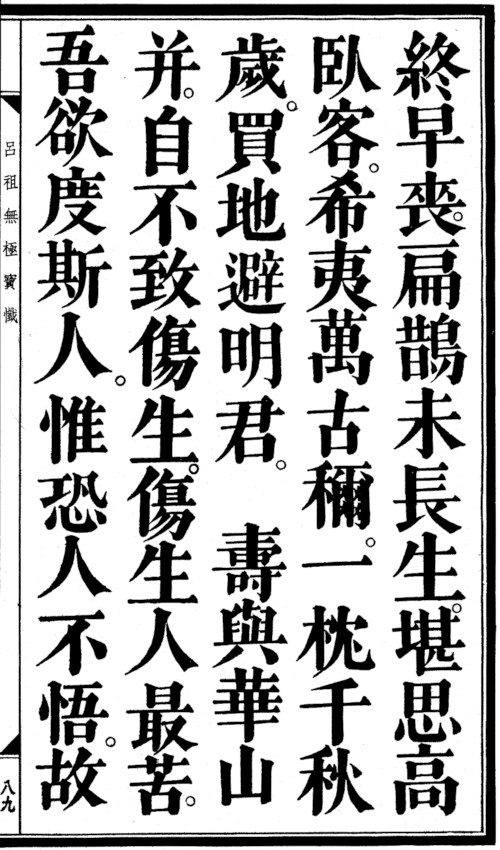 終早喪。扁鵲未長生。堪思高
臥客。希夷萬古稱。一枕千秋
歲。買地避明君。 壽與華山
并。自不致傷生。傷生人最苦。
吾欲度斯人。惟恐人不悟。故
呂祖無極寶懺
八九